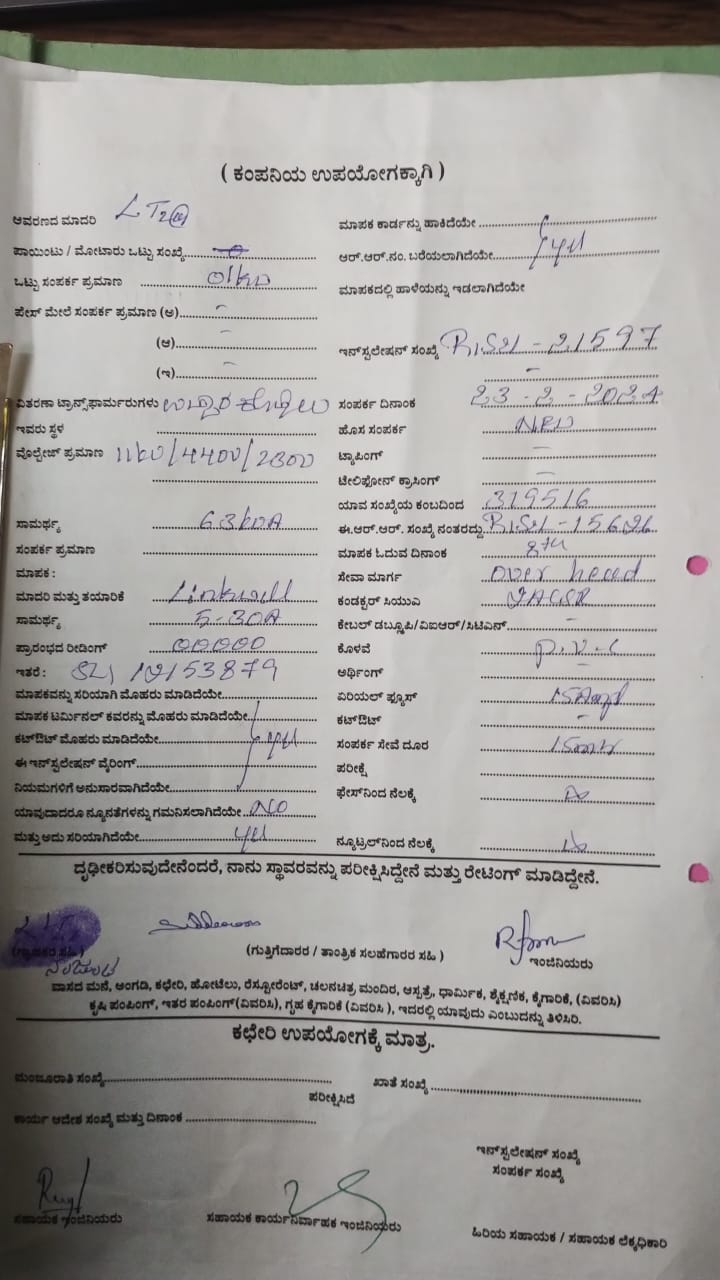 ( ಕಂಪನಿಯ ಉಪಯೋಗಕ್ಕಾಗಿ )
ಆವರಣದ ಮಾದರಿ LT2
ಪಾಯಿಂಟು / ಮೋಟಾರು ಒಟ್ಟು ಸಂಖ್ಯೆ
ಒಟ್ಟು ಸಂಪರ್ಕ ಪ್ರಮಾಣ
ಪೇಸ್ ಮೇಲೆ ಸಂಪರ್ಕ ಪ್ರಮಾಣ (ಅ) -
(ಆ) -
(ಇ) -
ವಿತರಣಾ ಟ್ರಾನ್ಸ್‌ಫಾರ್ಮರುಗಳು
ಇವರು ಸ್ಥಳ
ವೋಲ್ಟೇಜ್ ಪ್ರಮಾಣ
ಸಾಮರ್ಥ್ಯ 63kVA
ಸಂಪರ್ಕ ಪ್ರಮಾಣ
ಮಾಪಕ :
ಮಾದರಿ ಮತ್ತು ತಯಾರಿಕೆ Linkwell
ಸಾಮರ್ಥ್ಯ 5-30A
ಪ್ರಾರಂಭದ ರೀಡಿಂಗ್ 00000
ಇತರೆ : 19153879
ಮಾಪಕವನ್ನು ಸರಿಯಾಗಿ ಮೊಹರು ಮಾಡಿದೆಯೇ
ಮಾಪಕ ಟರ್ಮಿನಲ್ ಕವರನ್ನು ಮೊಹರು ಮಾಡಿದೆಯೇ
ಕಟ್‌ಔಟ್ ಮೊಹರು ಮಾಡಿದೆಯೇ yes
ಈ ಇನ್‌ಸ್ಟಲೇಷನ್ ವೈರಿಂಗ್
ನಿಯಮಗಳಿಗೆ ಅನುಸಾರವಾಗಿದೆಯೇ
ಯಾವುದಾದರೂ ನ್ಯೂನತೆಗಳನ್ನು ಗಮನಿಸಲಾಗಿದೆಯೇ NO
ಮತ್ತು ಅದು ಸರಿಯಾಗಿದೆಯೇ yes
ಮಾಪಕ ಕಾರ್ಡನ್ನು ಹಾಕಿದೆಯೇ
ಆರ್.ಆರ್.ನಂ. ಬರೆಯಲಾಗಿದೆಯೇ yes
ಮಾಪಕದಲ್ಲಿ ಹಾಳೆಯನ್ನು ಇಡಲಾಗಿದೆಯೇ
ಇನ್‌ಸ್ಟಲೇಷನ್ ಸಂಖ್ಯೆ - 21597
-
ಸಂಪರ್ಕ ದಿನಾಂಕ 23-2-2024
ಹೊಸ ಸಂಪರ್ಕ NEW
ಟ್ಯಾಪಿಂಗ್ -
ಟೆಲಿಫೋನ್ ಕ್ರಾಸಿಂಗ್ -
ಯಾವ ಸಂಖ್ಯೆಯ ಕಂಬದಿಂದ 319516
ಈ.ಆರ್.ಆರ್. ಸಂಖ್ಯೆ ನಂತರದ್ದು
ಮಾಪಕ ಓದುವ ದಿನಾಂಕ 8th
ಸೇವಾ ಮಾರ್ಗ over head
ಕಂಡಕ್ಟರ್ ಸಿಯುಎ
ಕೇಬಲ್ ಡಬ್ಲ್ಯೂಪಿ/ವಿಐಆರ್/ಸಿಟಿಎಸ್ -
ಕೊಳವೆ P.V.C
ಅರ್ಥಿಂಗ್ -
ಏರಿಯಲ್ ಫ್ಯೂಸ್ 15Amp
ಕಟ್‌ಔಟ್ -
ಸಂಪರ್ಕ ಸೇವೆ ದೂರ
ಪರೀಕ್ಷೆ
ಫೇಸ್‌ನಿಂದ ನೆಲಕ್ಕೆ
ನ್ಯೂಟ್ರಲ್‌ನಿಂದ ನೆಲಕ್ಕೆ
ದೃಢೀಕರಿಸುವುದೇನೆಂದರೆ, ನಾನು ಸ್ಥಾವರವನ್ನು ಪರೀಕ್ಷಿಸಿದ್ದೇನೆ ಮತ್ತು ರೇಟಿಂಗ್ ಮಾಡಿದ್ದೇನೆ.
(ಗ್ರಾಹಕರ ಸಹಿ) (ಗುತ್ತಿಗೆದಾರರ / ತಾಂತ್ರಿಕ ಸಲಹೆಗಾರರ ಸಹಿ ) ಇಂಜಿನಿಯರು
ವಾಸದ ಮನೆ, ಅಂಗಡಿ, ಕಛೇರಿ, ಹೋಟೆಲು, ರೆಸ್ಟೋರೆಂಟ್, ಚಲನಚಿತ್ರ ಮಂದಿರ, ಆಸ್ಪತ್ರೆ, ಧಾರ್ಮಿಕ, ಶೈಕ್ಷಣಿಕ, ಕೈಗಾರಿಕೆ, (ವಿವರಿಸಿ)
ಕೃಷಿ ಪಂಪಿಂಗ್, ಇತರ ಪಂಪಿಂಗ್(ವಿವರಿಸಿ), ಗೃಹ ಕೈಗಾರಿಕೆ (ವಿವರಿಸಿ ), ಇದರಲ್ಲಿ ಯಾವುದು ಎಂಬುದನ್ನು ತಿಳಿಸಿರಿ.
ಕಛೇರಿ ಉಪಯೋಗಕ್ಕೆ ಮಾತ್ರ.
ಮಂಜೂರಾತಿ ಸಂಖ್ಯೆ ಖಾತೆ ಸಂಖ್ಯೆ
ಪರೀಕ್ಷಿಸಿದೆ
ಕಾರ್ಯ ಆದೇಶ ಸಂಖ್ಯೆ ಮತ್ತು ದಿನಾಂಕ
ಇನ್‌ಸ್ಟಲೇಷನ್ ಸಂಖ್ಯೆ
ಸಂಪರ್ಕ ಸಂಖ್ಯೆ
ಸಹಾಯಕ ಇಂಜಿನಿಯರು ಸಹಾಯಕ ಕಾರ್ಯನಿರ್ವಾಹಕ ಇಂಜಿನಿಯರು ಹಿರಿಯ ಸಹಾಯಕ / ಸಹಾಯಕ ಲೆಕ್ಕಧಿಕಾರಿ